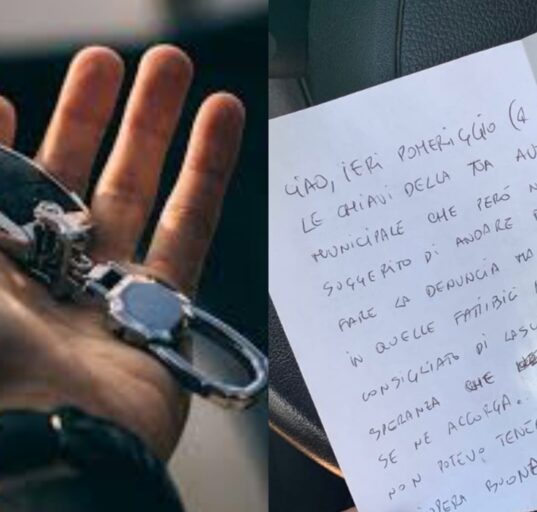 CIAO, IERI POMERIGGIO (4
LE CHIAVI DELLA TUA AU
MUNICIPALE CHE PERÒ N
SUGGERITO DI ANDARE
FARE LA DENUNCIA MA
IN QUELLE FATTIBIC
CONSIGLIATO DI LASC
SPERANZA CHE
SE NE ACCORGA.
NON POTEVO TENE
OPERA BUONA